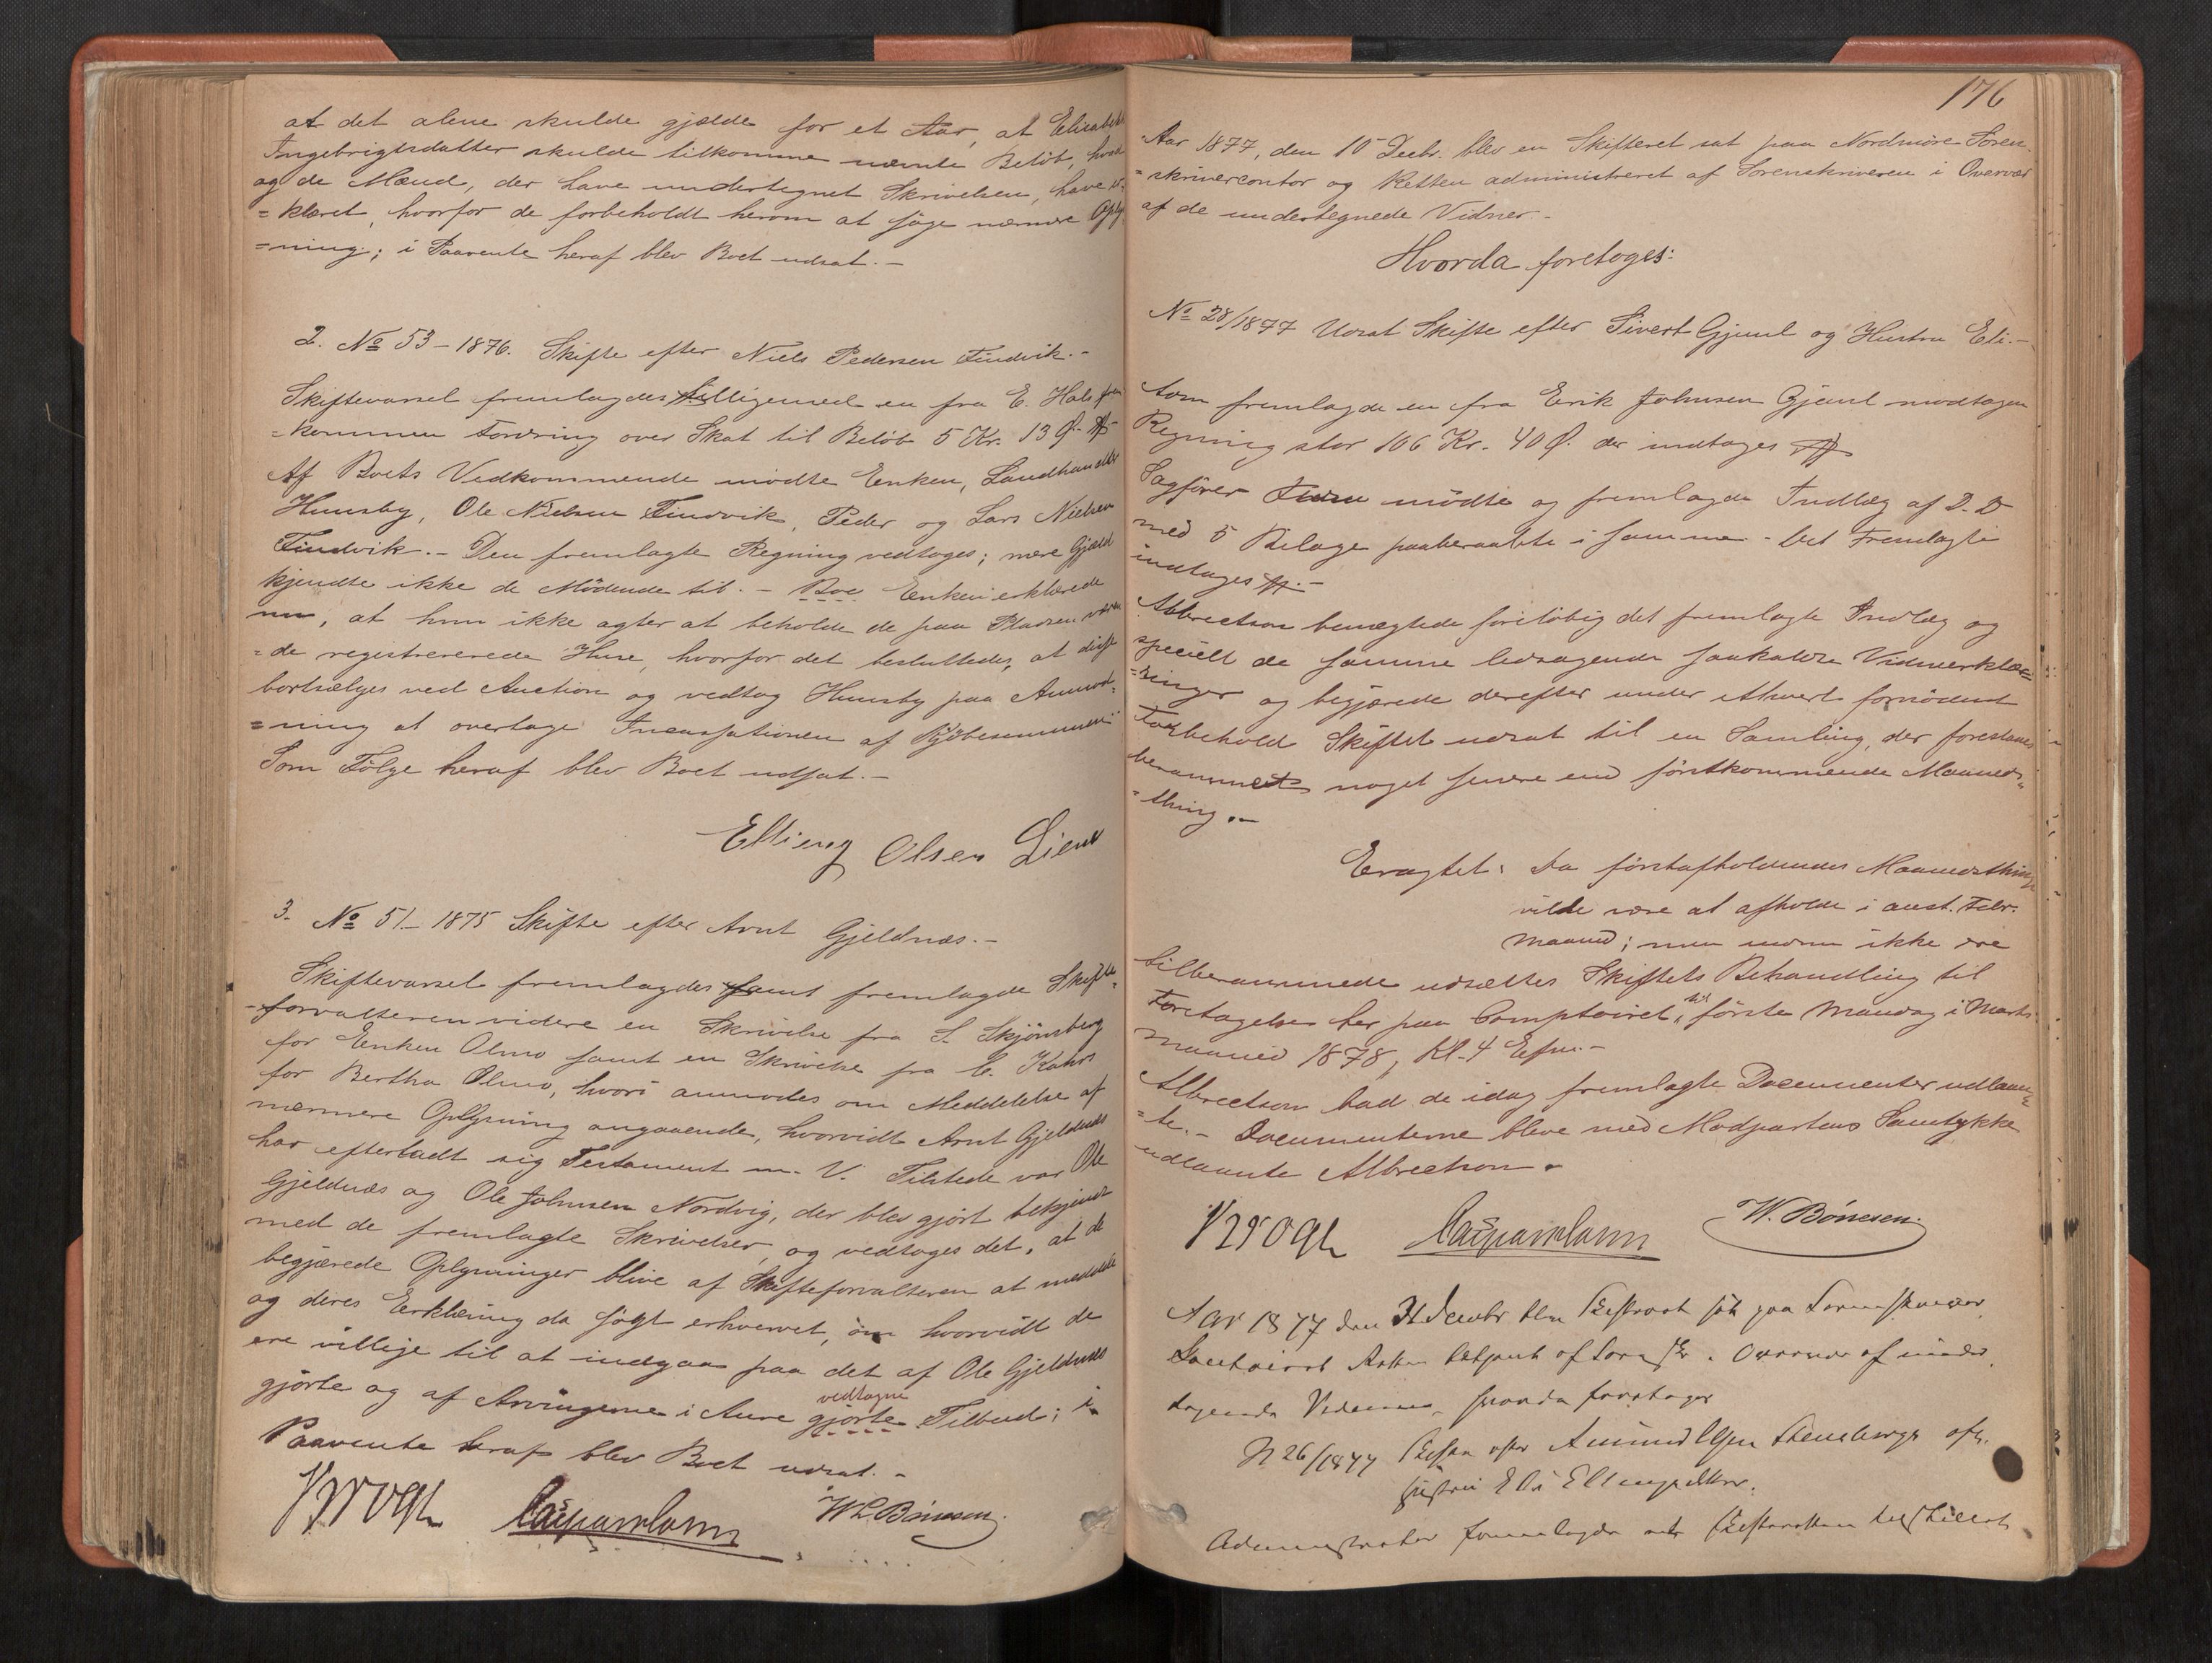 at det alene skulde gjælde for et Aar, at Elisabeth
Ingebrigtsdatter skulde tilkomme nævnte Beløb, hvad
og de Mænd, der have undertegnet Skrivelsen, have er-
=klæret, hvorfor de forbeholdt herom at søge nærmere Oply
=ning; i Paavente heraf blev Boet udsat.-
2. No 53-1876. Skifte efter Niels Pedersen Findvik.-
Skiftevarsel fremlagdes tilligemed en fra E. Hals frem
=kommen Fordring over Skat til Beløb 5 Kr. 13 Ø.
Af Boets Vedkommende mødte Enken, Landhandler
Hunsby, Ole Nielsen Findvik, Peder og Lars Nielsen
Findvik.- Den fremlagte Regning vedtoges; mere Gjæld
kjendte ikke de Mødende til.- Boe Enken erklærede
nu, at hun ikke agter at beholde de paa Pladsen være
=de registrerede Huse, hvorfor det besluttedes, at disse
bortsælges ved Auction og vedtog Hunsby paa Anmod-
=ning at overtage Incassationen af Kjøbesummen
Som Følge heraf blev Boet udsat.-
Elling Olsen Lien
3. No 51-1875 Skifte efter Arnt Gjeldnæs.-
Skiftevarsel fremlagdes samt fremlagde Skifte-
-forvalteren videre en Skrivelse fra S. Skjønsberg
for Enken Olmo samt en Skrivelse fra C. Kahrs
for Bertha Olmo, hvori anmodes om Meddelelse af
nærmere Oplysning angaaende, hvorvidt Arnt Gjeldnæs
har efterladt sig Testament m. V. Tilstede var Ole
Gjeldnæs og Ole Johnsen Nordvig, der blev gjort bekjendt
med de fremlagte Skrivelser, og vedtoges det, at de
begjærede Oplysninger blive af Skifteforvalteren at meddele
og deres Erklæring da søgt erhvervet, om hvorvidt de
ere villige til at indgaa paa det af Ole Gjeldnæs
gjorte og af Arvingerne i Aure gjorte vedtagne Tilbud; i
Paavente heraf blev Boet udsat.-
Vogt Casparsson W. Bønesen
176
Aar 1877, den 10 Decbr. blev en Skifteret sat paa Nordmøre Soren-
=skrivercontor og Retten administreret af Sorenskriveren i Overvær
af de undertegnede Vidner.-
Hvorda foretoges:
No 28/1877 Udsat Skifte efter Sivert Gjøul og Hustru Eli.-
som fremlagde en fra Erik Johnsen Gjøul modtagen
Regning stor 106 Kr. 40 Ø. der indtages
Sagfører mødte og fremlagde Indlæg af D. D
med 5 Bilage paaberaabte i samme. Det Fremlagte
indtages.-
Albrectson benægtede foreløbig det fremlagte Indlæg og
specielt de samme ledsagende saakaldte Vidneerklæ=
=ringer og begjærede derefter under ethvert fornødent
Forbehold Skiftet udsat til en Samling, der forestaaes
berammet noget senere end førstkommende Maaneds-
=thing.-
Eragtet: Da førstafholdendes Maanedsthing
vilde være at afholde i anst. Febr.
Maaned; men endnu ikke ere
tilberammede udsættes Skiftets Behandling til
Foretagelse her paa Comptoiret, til første Mandag i Marts
Maaned 1878, Kl. 4 Efm.-
Albrectson bad de idag fremlagte Documenter udlaan=
=te.- Documenterne bleve med Modpartens Samtykke
udlaante Albrectson.
Vogt Casparsson W. Bønesen
Aar 1877 den 31 Decbr blev Skifteret sat paa Sorenskriver
Contoiret Retten betjent af Sorensk. i Overvær af under
tegnede Vidner, hvorda foretoges
N 26/1877 Skifte efter Amund Olsen
Hustru Eli Ellingsdatter.
Administrator fremlagde